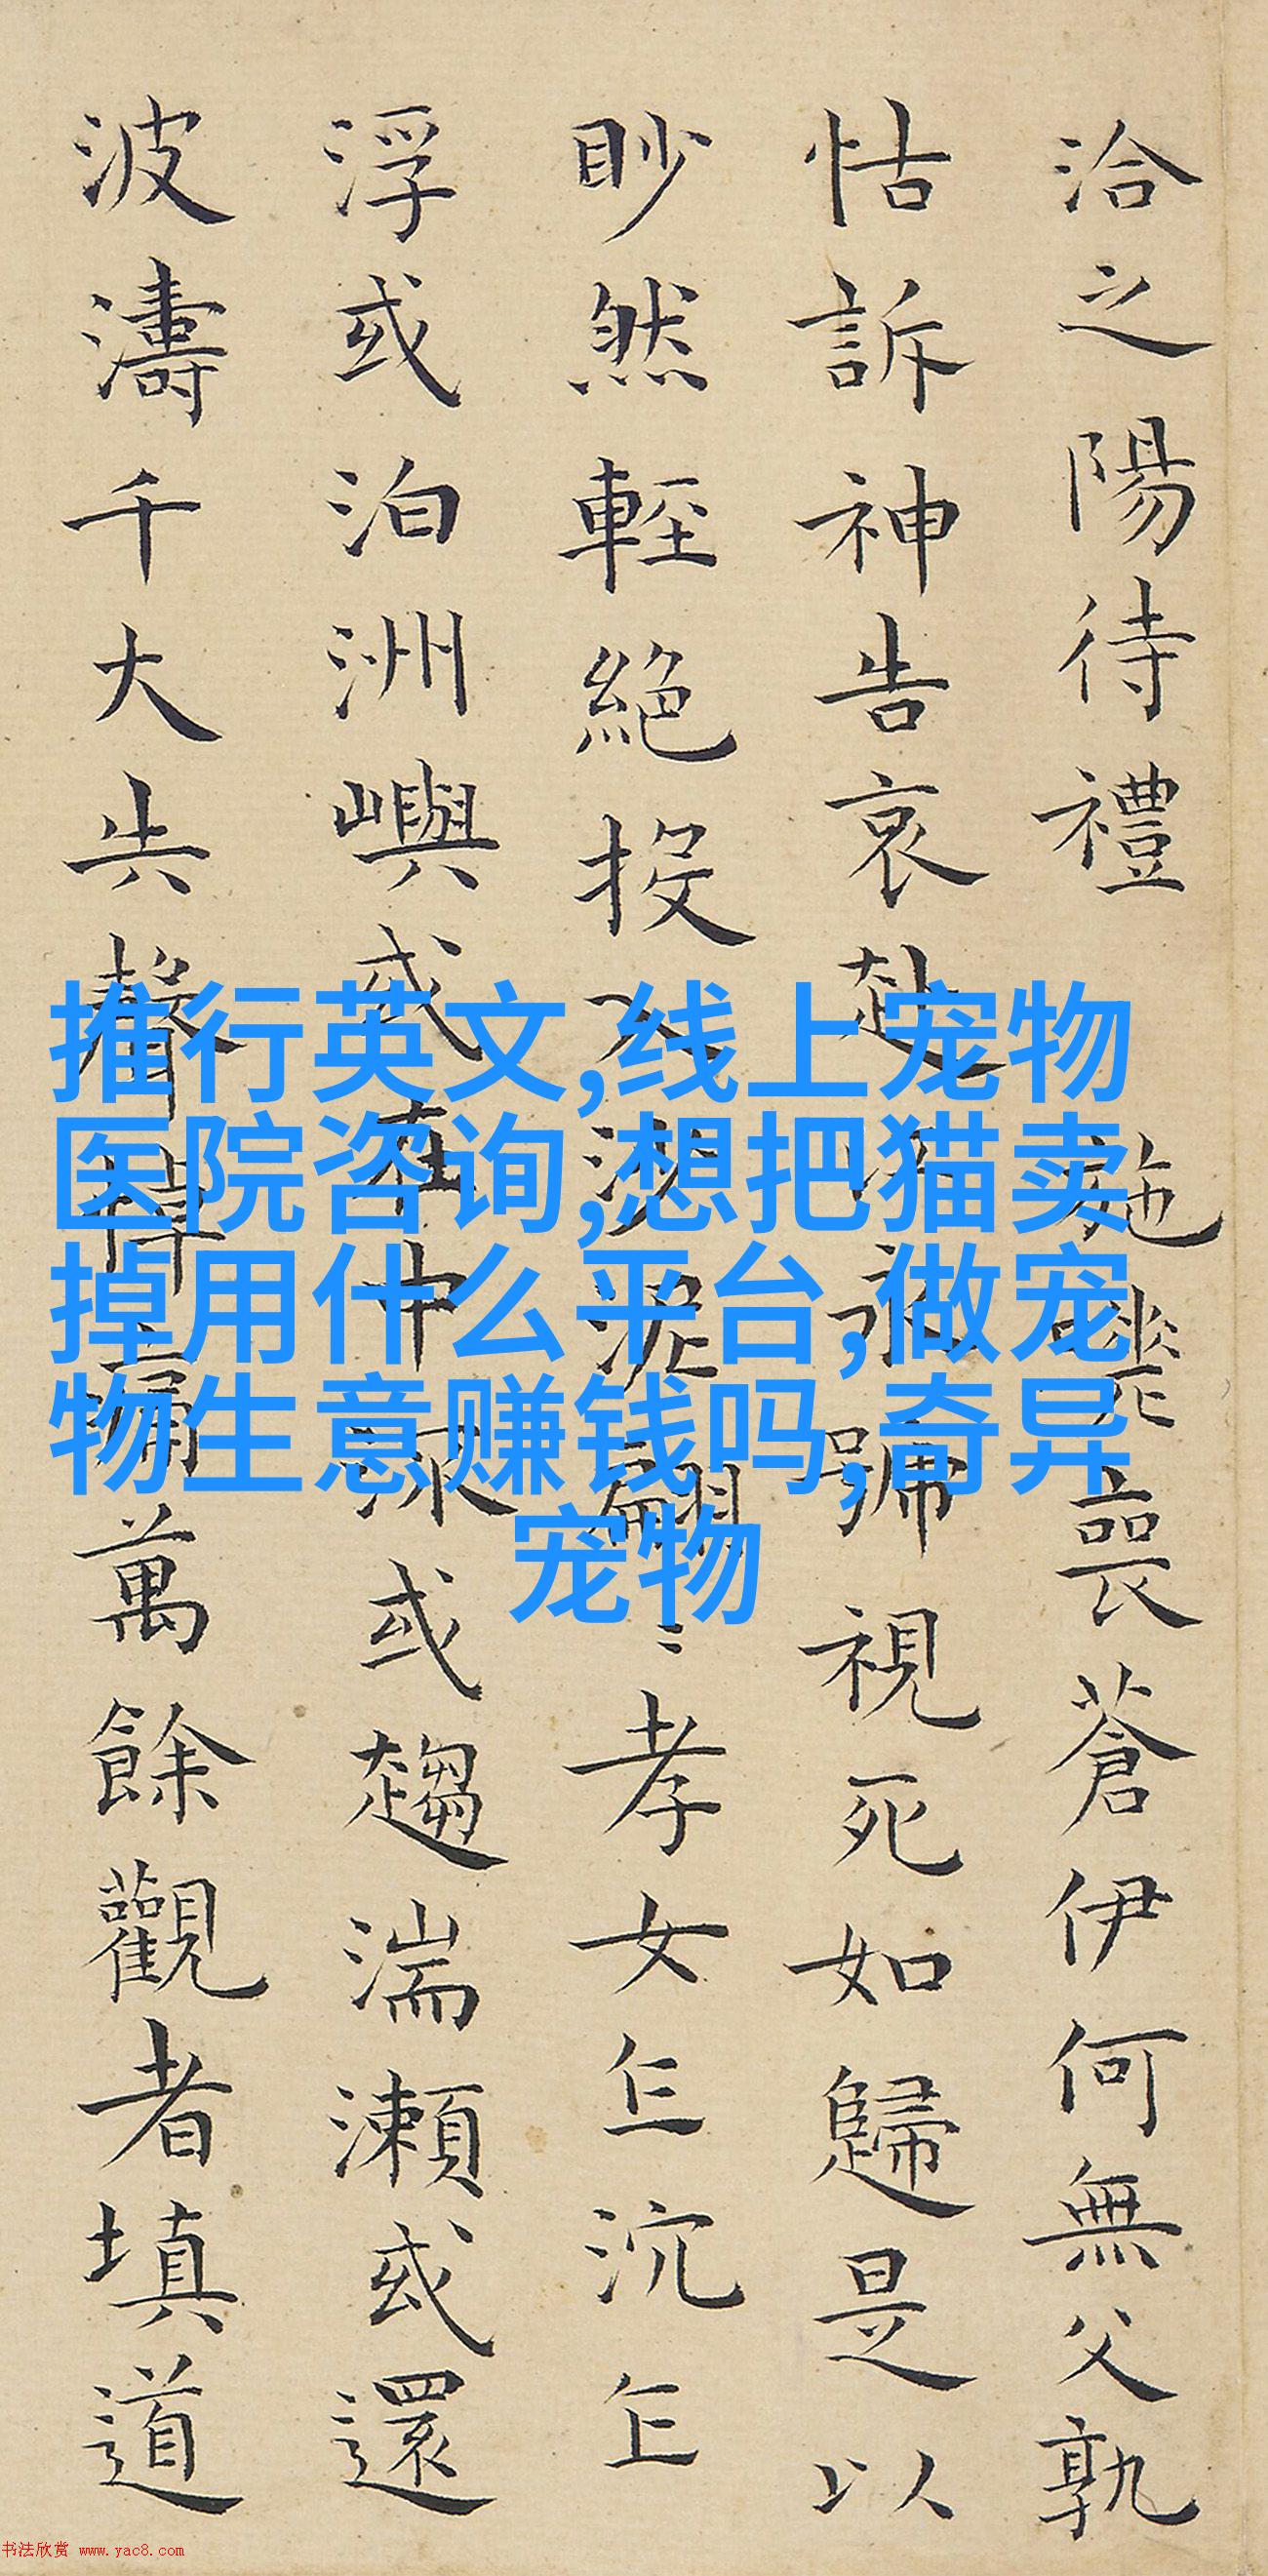 洽之陽待禮施嗟喪蒼伊何無父孰
怙訴神告哀赴江永號視死如歸是以
眇然輕絕投入沙泥翩〻孝女乍沉乍
浮或泊洲嶼或在中流或趨湍瀨或還
波濤千大失聲悼痛萬餘觀者填道
推行英文,线上宠物
医院咨询,想把猫卖
掉用什么平台,做宠
物生意赚钱吗,奇异
宠物
书法欣赏 www.yac8.com